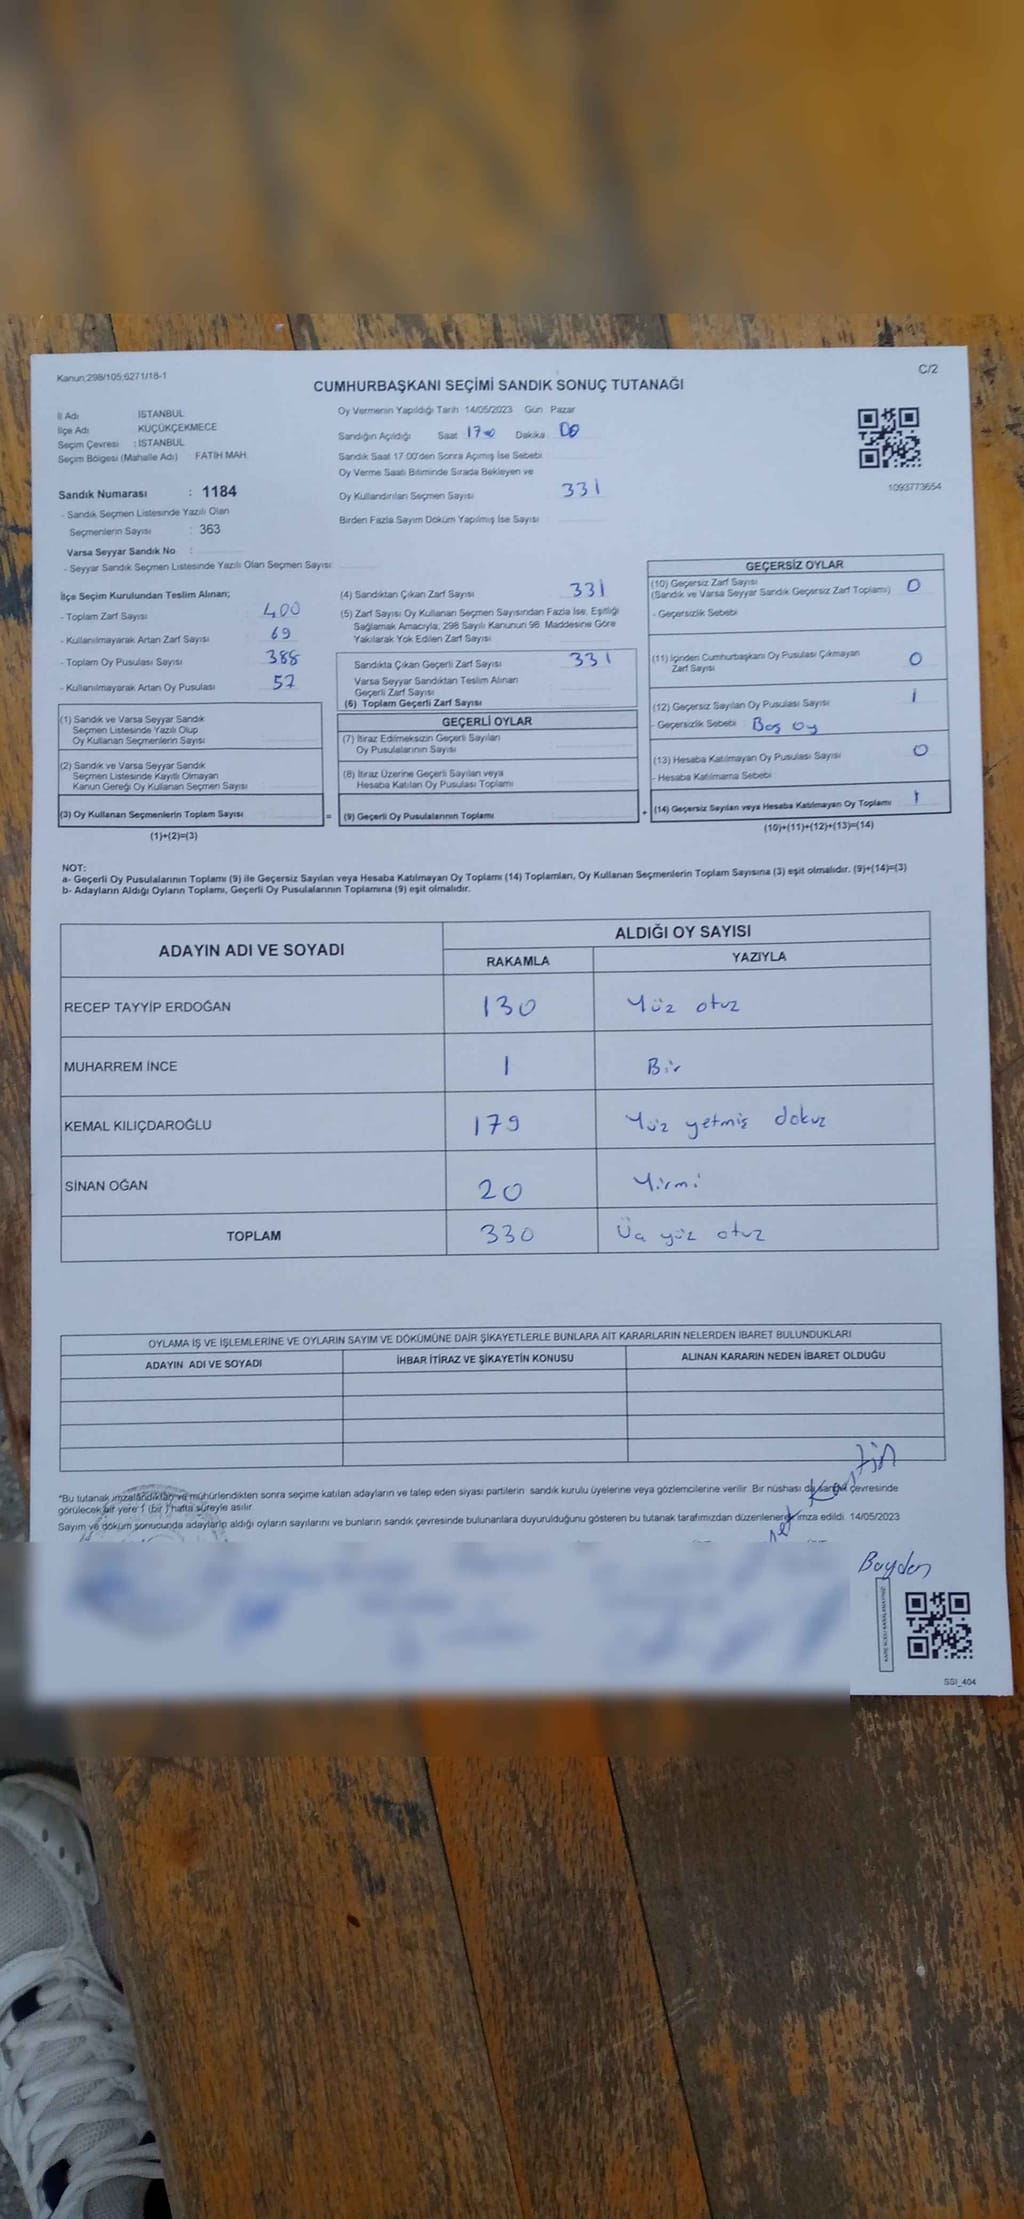 Kanun;298/105;6271/18-1
C/2
CUMHURBAŞKANI SEÇİMİ SANDIK SONUÇ TUTANAĞI
İl Adı ISTANBUL
İlçe Adı KÜÇÜKÇEKMECE
Seçim Çevresi : ISTANBUL
Seçim Bölgesi (Mahalle Adı) FATIH MAH.
Sandık Numarası : 1184
- Sandık Seçmen Listesinde Yazılı Olan
Seçmenlerin Sayısı : 363
Varsa Seyyar Sandık No :
- Seyyar Sandık Seçmen Listesinde Yazılı Olan Seçmen Sayısı:
Oy Vermenin Yapıldığı Tarih 14/05/2023 Gün Pazar
Sandığın Açıldığı Saat Dakika
Sandık Saat 17 00'den Sonra Açımış İse Sebebi
Oy Verme Saati Bitiminde Sırada Bekleyen ve
Oy Kullandırılan Seçmen Sayısı 331
Birden Fazla Sayım Döküm Yapılmış İse Sayısı
1093773654
İlçe Seçim Kurulundan Teslim Alınan;
- Toplam Zarf Sayısı 400
- Kullanılmayarak Artan Zarf Sayısı 69
- Toplam Oy Pusulası Sayısı 388
- Kullanılmayarak Artan Oy Pusulası 57
(1) Sandık ve Varsa Seyyar Sandık
Seçmen Listesinde Yazılı Olup
Oy Kullanan Seçmenlerin Sayısı
(2) Sandık ve Varsa Seyyar Sandık
Seçmen Listesinde Kayıtlı Olmayan
Kanun Gereği Oy Kullanan Seçmen Sayısı
(3) Oy Kullanan Seçmenlerin Toplam Sayısı
(1)+(2)=(3)
(4) Sandıktan Çıkan Zarf Sayısı 331
(5) Zarf Sayısı Oy Kullanan Seçmen Sayısından Fazla İse, Eşitliği
Sağlamak Amacıyla, 298 Sayılı Kanunun 98. Maddesine Göre
Yakılarak Yok Edilen Zarf Sayısı
Sandıkta Çıkan Geçerli Zarf Sayısı 331
Varsa Seyyar Sandıktan Teslim Alınan
Geçerli Zarf Sayısı
(6) Toplam Geçerli Zarf Sayısı
GEÇERLİ OYLAR
(7) İtiraz Edilmeksizin Geçerli Sayılan
Oy Pusulalarının Sayısı
(8) İtiraz Üzerine Geçerli Sayılan veya
Hesaba Katılan Oy Pusulası Toplamı
= (9) Geçerli Oy Pusulalarının Toplamı +
GEÇERSİZ OYLAR
(10) Geçersiz Zarf Sayısı
(Sandık ve Varsa Seyyar Sandık Geçersiz Zarf Toplamı) 0
- Geçersizlik Sebebi
(11) İçinden Cumhurbaşkanı Oy Pusulası Çıkmayan
Zarf Sayısı 0
(12) Geçersiz Sayılan Oy Pusulası Sayısı 1
- Geçersizlik Sebebi Boş oy
(13) Hesaba Katılmayan Oy Pusulası Sayısı 0
- Hesaba Katılmama Sebebi
(14) Geçersiz Sayılan veya Hesaba Katılmayan Oy Toplamı 1
(10)+(11)+(12)+(13)=(14)
NOT:
a- Geçerli Oy Pusulalarının Toplamı (9) ile Geçersiz Sayılan veya Hesaba Katılmayan Oy Toplamı (14) Toplamları, Oy Kullanan Seçmenlerin Toplam Sayısına (3) eşit olmalıdır. (9)+(14)=(3)
b- Adayların Aldığı Oyların Toplamı, Geçerli Oy Pusulalarının Toplamına (9) eşit olmalıdır.
ADAYIN ADI VE SOYADI ALDIĞI OY SAYISI
RAKAMLA YAZIYLA
RECEP TAYYİP ERDOĞAN 130 Yüz otuz
MUHARREM İNCE 1 Bir
KEMAL KILIÇDAROĞLU 179 Yüz yetmiş dokuz
SİNAN OĞAN 20 Yirmi
TOPLAM 330 Üç yüz otuz
OYLAMA İŞ VE İŞLEMLERİNE VE OYLARIN SAYIM VE DÖKÜMÜNE DAİR ŞİKAYETLERLE BUNLARA AİT KARARLARIN NELERDEN İBARET BULUNDUKLARI
ADAYIN ADI VE SOYADI İHBAR İTİRAZ VE ŞİKAYETİN KONUSU ALINAN KARARIN NEDEN İBARET OLDUĞU
*Bu tutanak imzalandıktan ve mühürlendikten sonra seçime katılan adayların ve talep eden siyasi partilerin sandık kurulu üyelerine veya gözlemcilerine verilir. Bir nüshası da sandık çevresinde
görülecek bir yere 1 (bir ) hafta süreyle asılır.
Sayım ve döküm sonucunda adayların aldığı oyların sayılarını ve bunların sandık çevresinde bulunanlara duyurulduğunu gösteren bu tutanak tarafımızdan düzenlenerek imza edildi. 14/05/2023
SSI_404